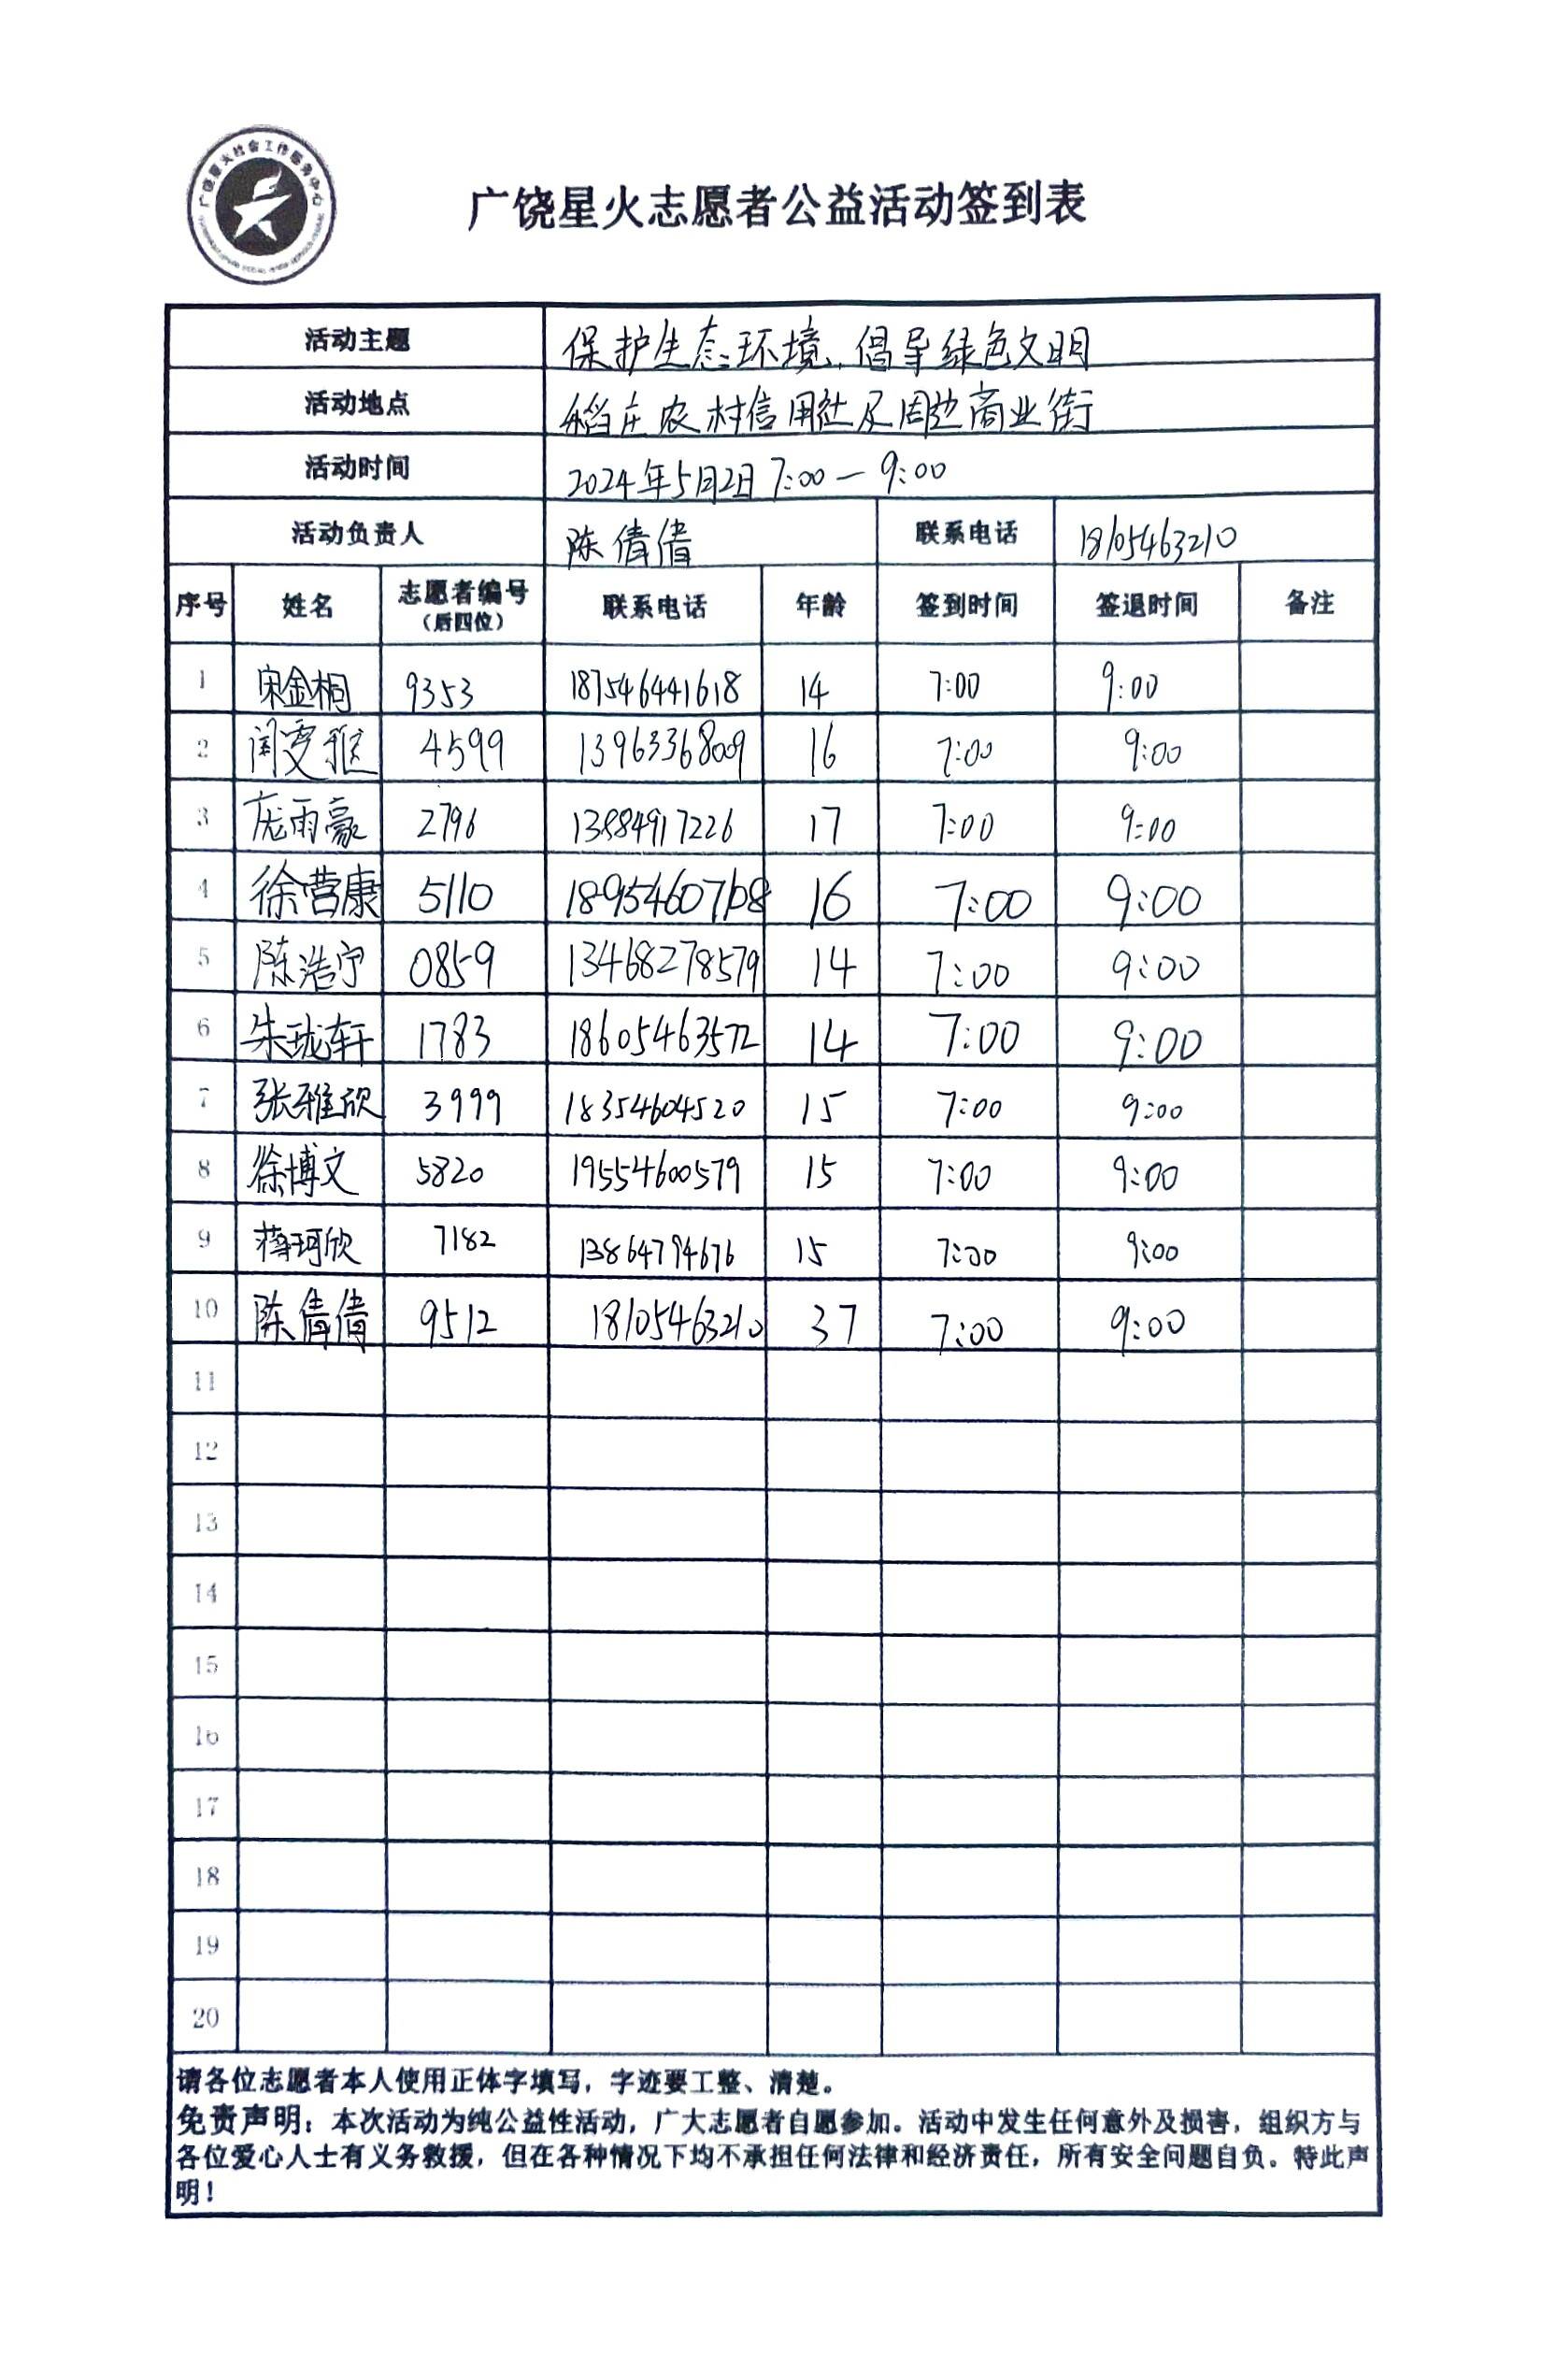 广饶星火社会工作服务中心
广饶星火志愿者公益活动签到表
活动主题 保护生态环境,倡导绿色文明
活动地点 稻庄农村信用社及周边商业街
活动时间 2024年5月2日 7:00—9:00
活动负责人 陈倩倩 联系电话 18105463210
序号 姓名 志愿者编号（后四位） 联系电话 年龄 签到时间 签退时间 备注
1 宋金桐 9353 187546441618 14 7:00 9:00
2 闫雯雅 4599 13963368009 16 7:00 9:00
3 庞雨豪 2796 13884917226 17 7:00 9:00
4 徐营康 5110 18954607108 16 7:00 9:00
5 陈浩宁 0859 13468278579 14 7:00 9:00
6 朱珑轩 1783 18605463572 14 7:00 9:00
7 张雅欣 3999 18354604520 15 7:00 9:00
8 徐博文 5820 19554600579 15 7:00 9:00
9 蒋珂欣 7182 13864794676 15 7:00 9:00
10 陈倩倩 9512 18105463210 37 7:00 9:00
11
12
13
14
15
16
17
18
19
20
请各位志愿者本人使用正体字填写，字迹要工整、清楚。
免责声明：本次活动为纯公益性活动，广大志愿者自愿参加。活动中发生任何意外及损害，组织方与
各位爱心人士有义务救援，但在各种情况下均不承担任何法律和经济责任，所有安全问题自负。特此声
明！